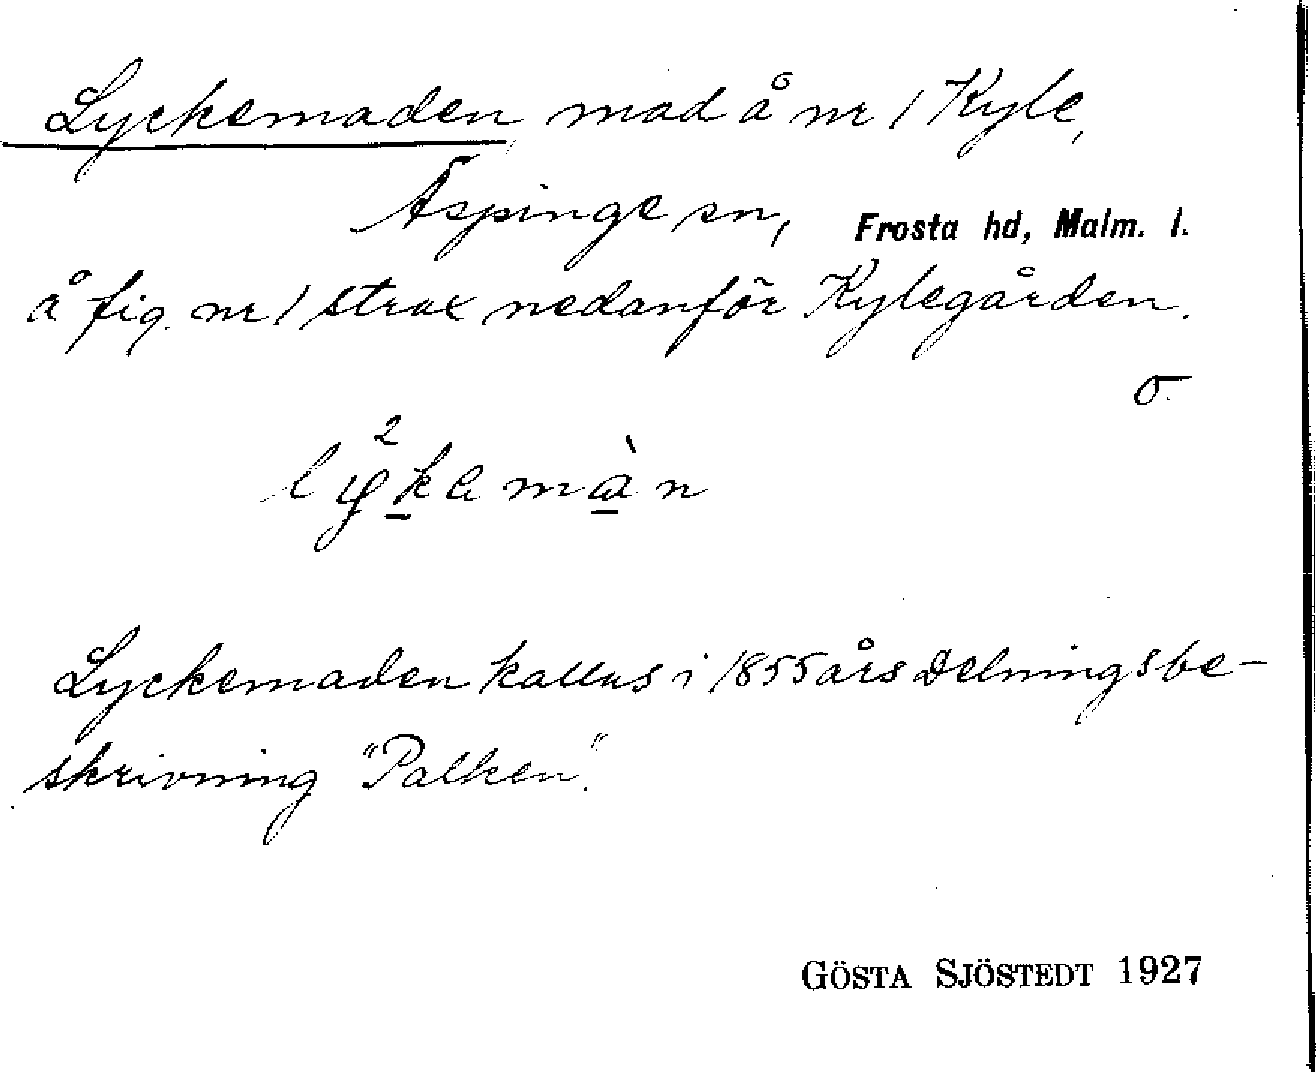 Lyckemaden, mad å nr 1 Kyle,
Äspinge sn, Frosta hd, Malm. l.
å fig. nr 1 strax nedanför Kylegården.
Lyckemaden kallas i 1855 års Delningsbe-
skrivning "Palken".
GÖSTA SJÖSTEDT 1927